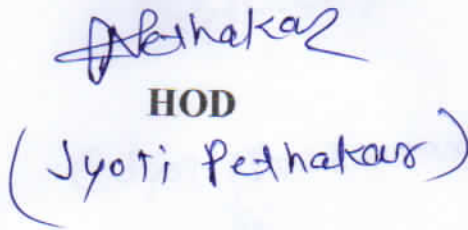 Pethakar
HOD
(Jyoti Pethakar)